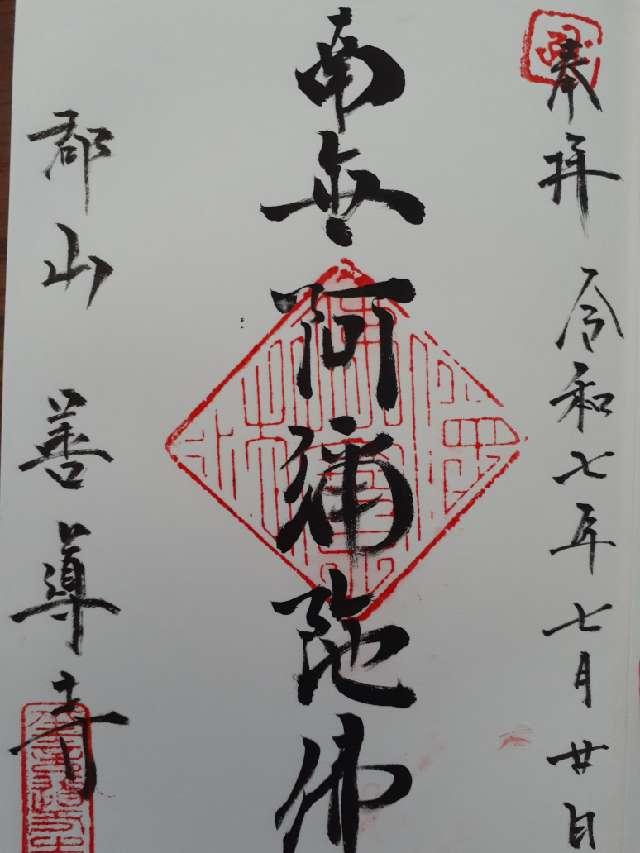 奉拝 令和七年七月廿日
南無阿彌陀佛
郡山 善導寺